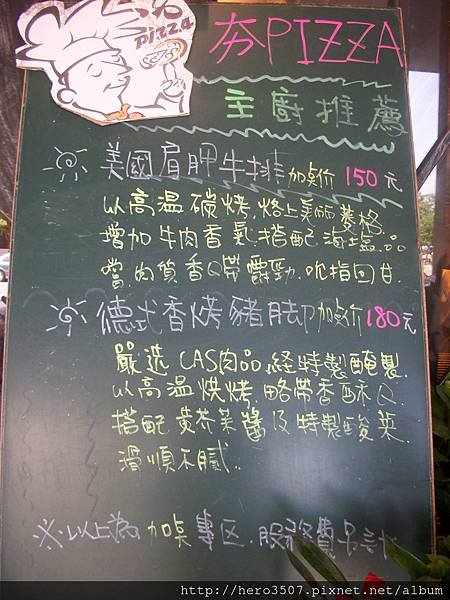 夯
pizza
夯PIZZA
主廚推薦
美國肩胛牛排 加点价 150元
以高温碳烤.烙上美丽菱格.
增加牛肉香氣.搭配海塩.品
嚐.肉質香Q帶嚼勁.吮指回甘.
德式香烤豬脚 加点价 180元
嚴选CAS肉品.経特製醃製.
以高温烘烤.略帶香酥Q.
搭配黄芥茉醬及特製酸菜.
滑順不膩..
※以上為加点專区.服務費另計
http://hero3507.pixnet.net/album